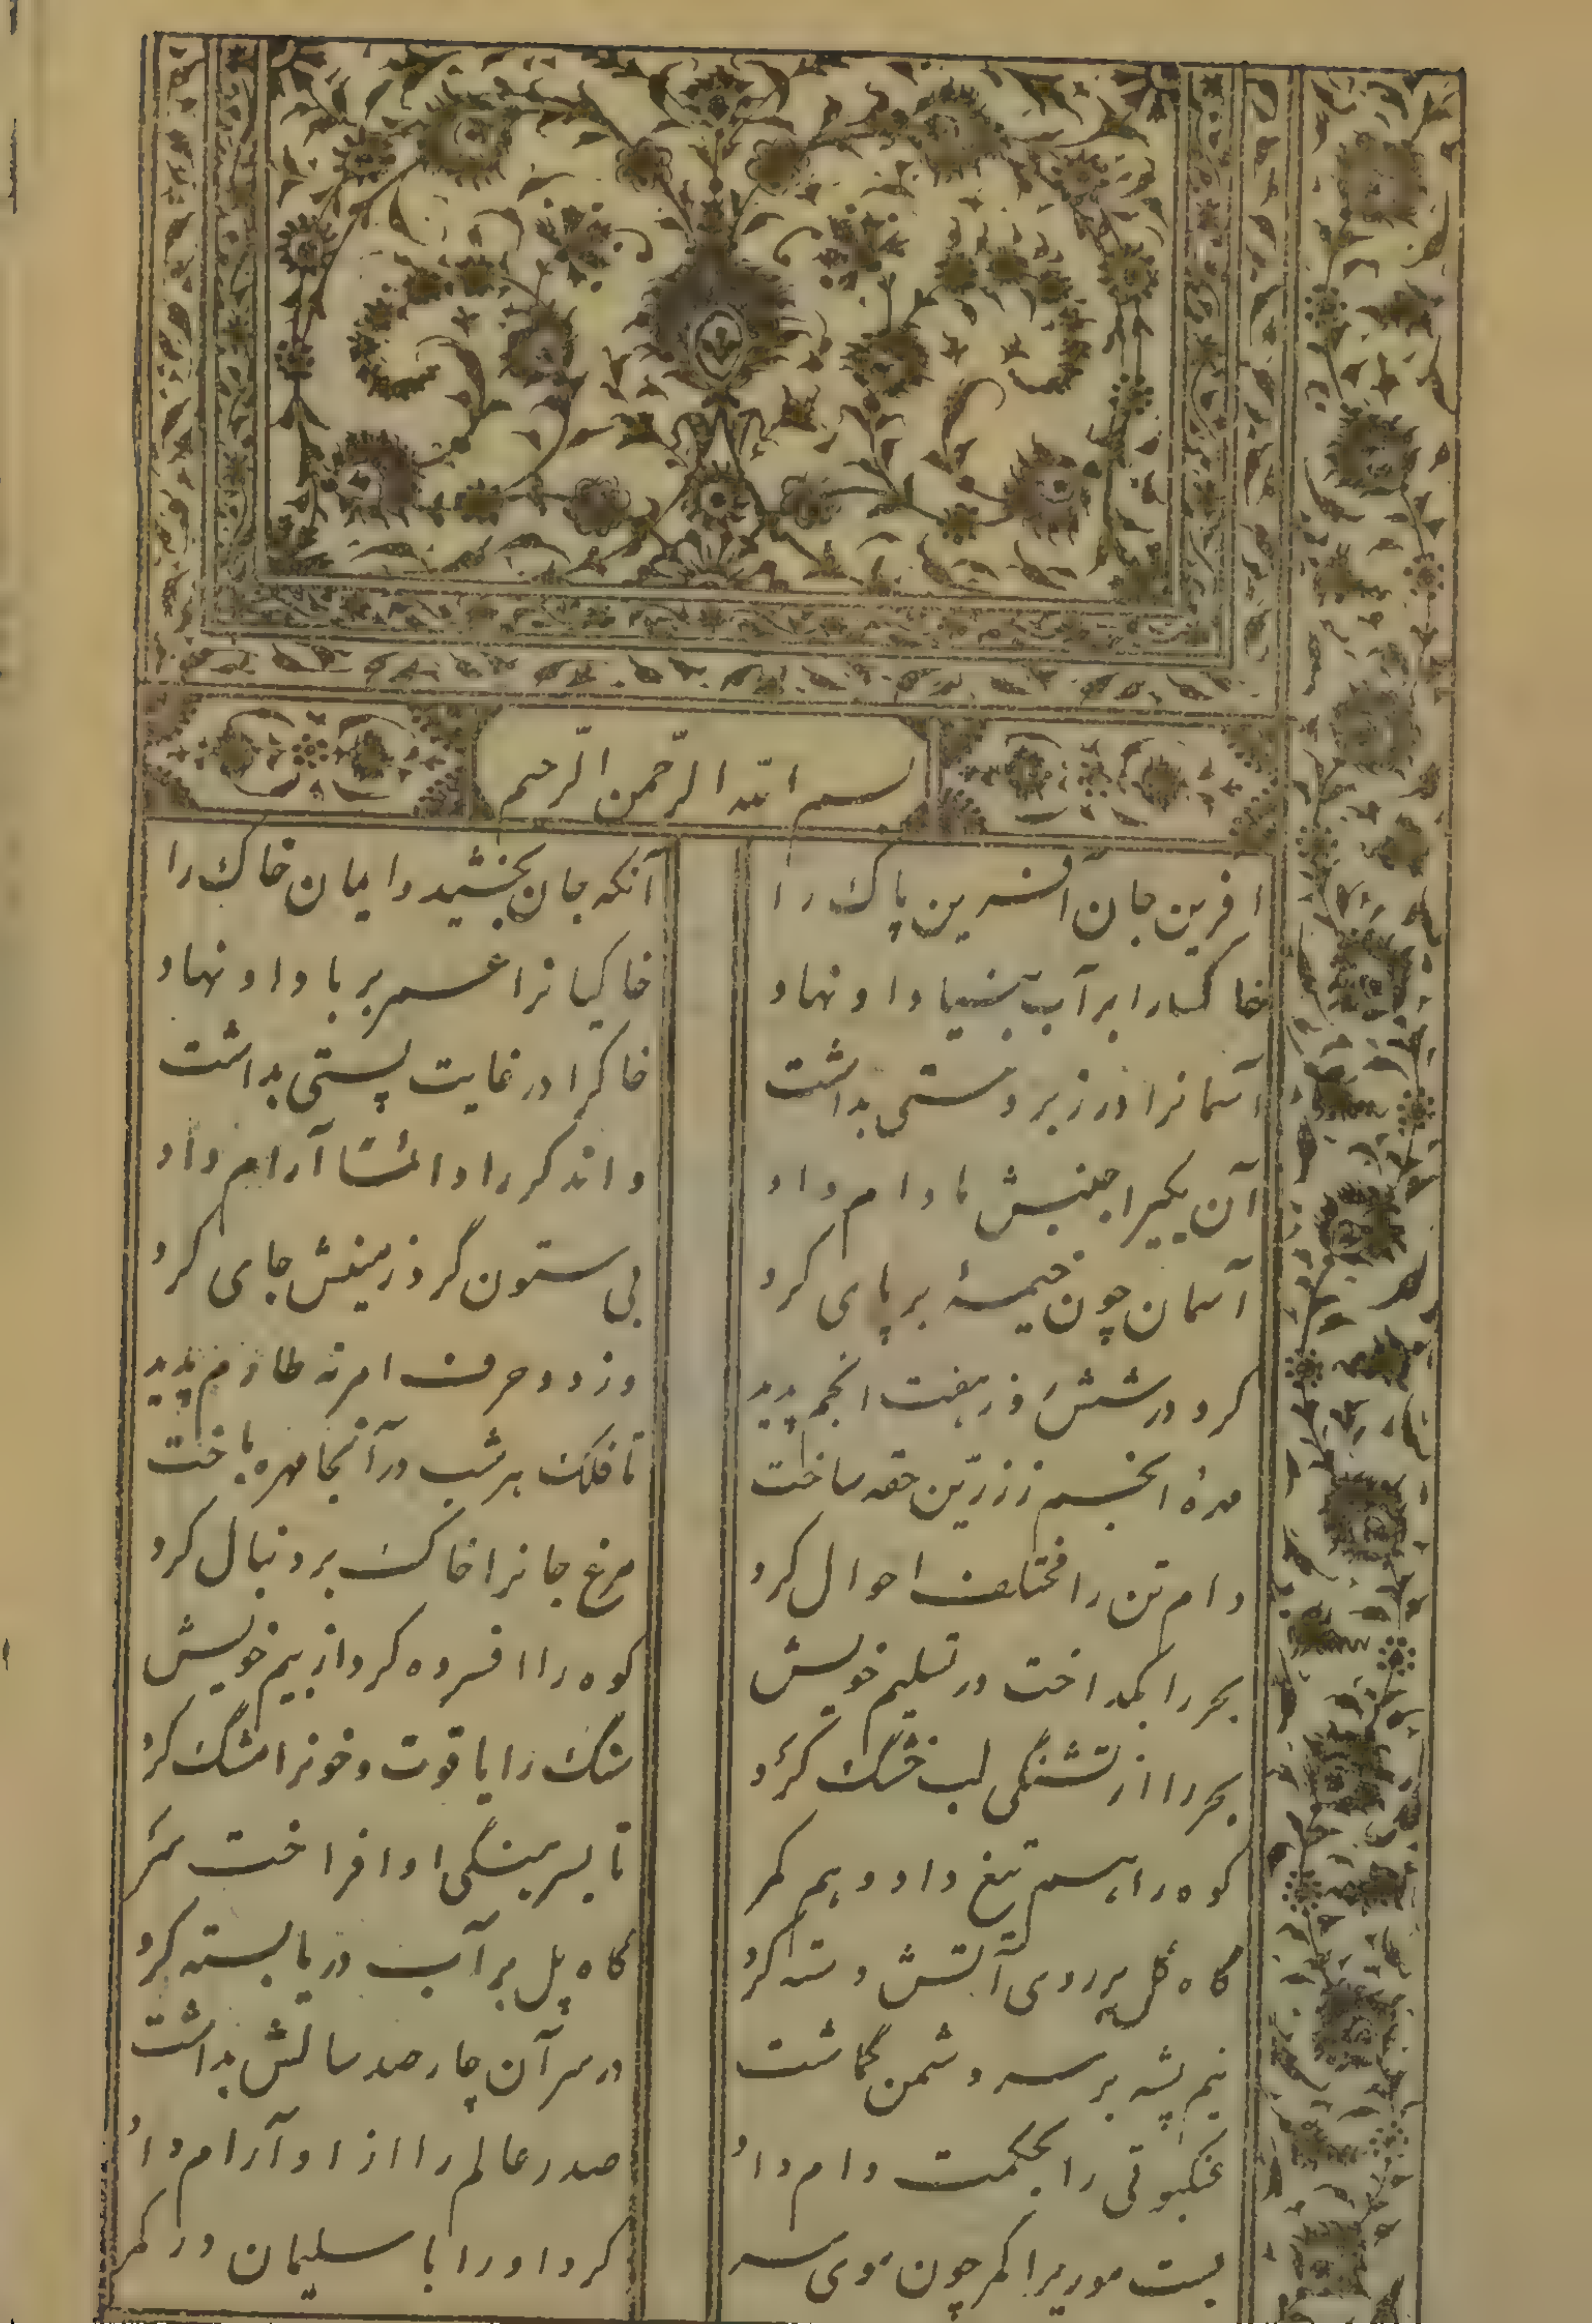 بسم الله الرّحمن الرّحیم
آفرین جان آفرین پاک را
آنکه جان بخشید و ایمان خاک را
خاکسارا بر آب بنیاد او نهاد
خاکیانرا عمر بر باد او نهاد
آسمانرا در زبر دستی بداشت
خاکرا در غایت پستی بداشت
آن یکیرا جنبش مادام داد
و اندگر را دائما آرام داد
آسمان چون خیمۀ بر پای کرد
بی ستون کرد و زمینش جای کرد
کرد در شش روز هفت انجم پدید
وز دو حرف امر نه طارم پدید
مهرۀ انجم ز زرّین حقه ساخت
تا فلک هر شب در آنجا مهره باخت
دام تن را مختلف احوال کرد
مرغ جانرا خاک بر دنبال کرد
بحر را بگداخت در تسلیم خویش
کوه را افسرده کرد از بیم خویش
بحر را از تشنگی لب خشک کرد
سنگ را یاقوت و خونرا مشک کرد
کوه را هم تیغ داد و هم کمر
تا بسرهنگی او افراخت سر
گاه گل بر روی آتش دسته کرد
گاه پل بر آب دریا بسته کرد
نیم پشه بر سر دشمن گماشت
در سر آن چار صد سالش بداشت
عنکبوتی را بحکمت دام داد
صدر عالم را از او آرام داد
بست موریرا کمر چون موی سر
کرد او را با سلیمان در کمر